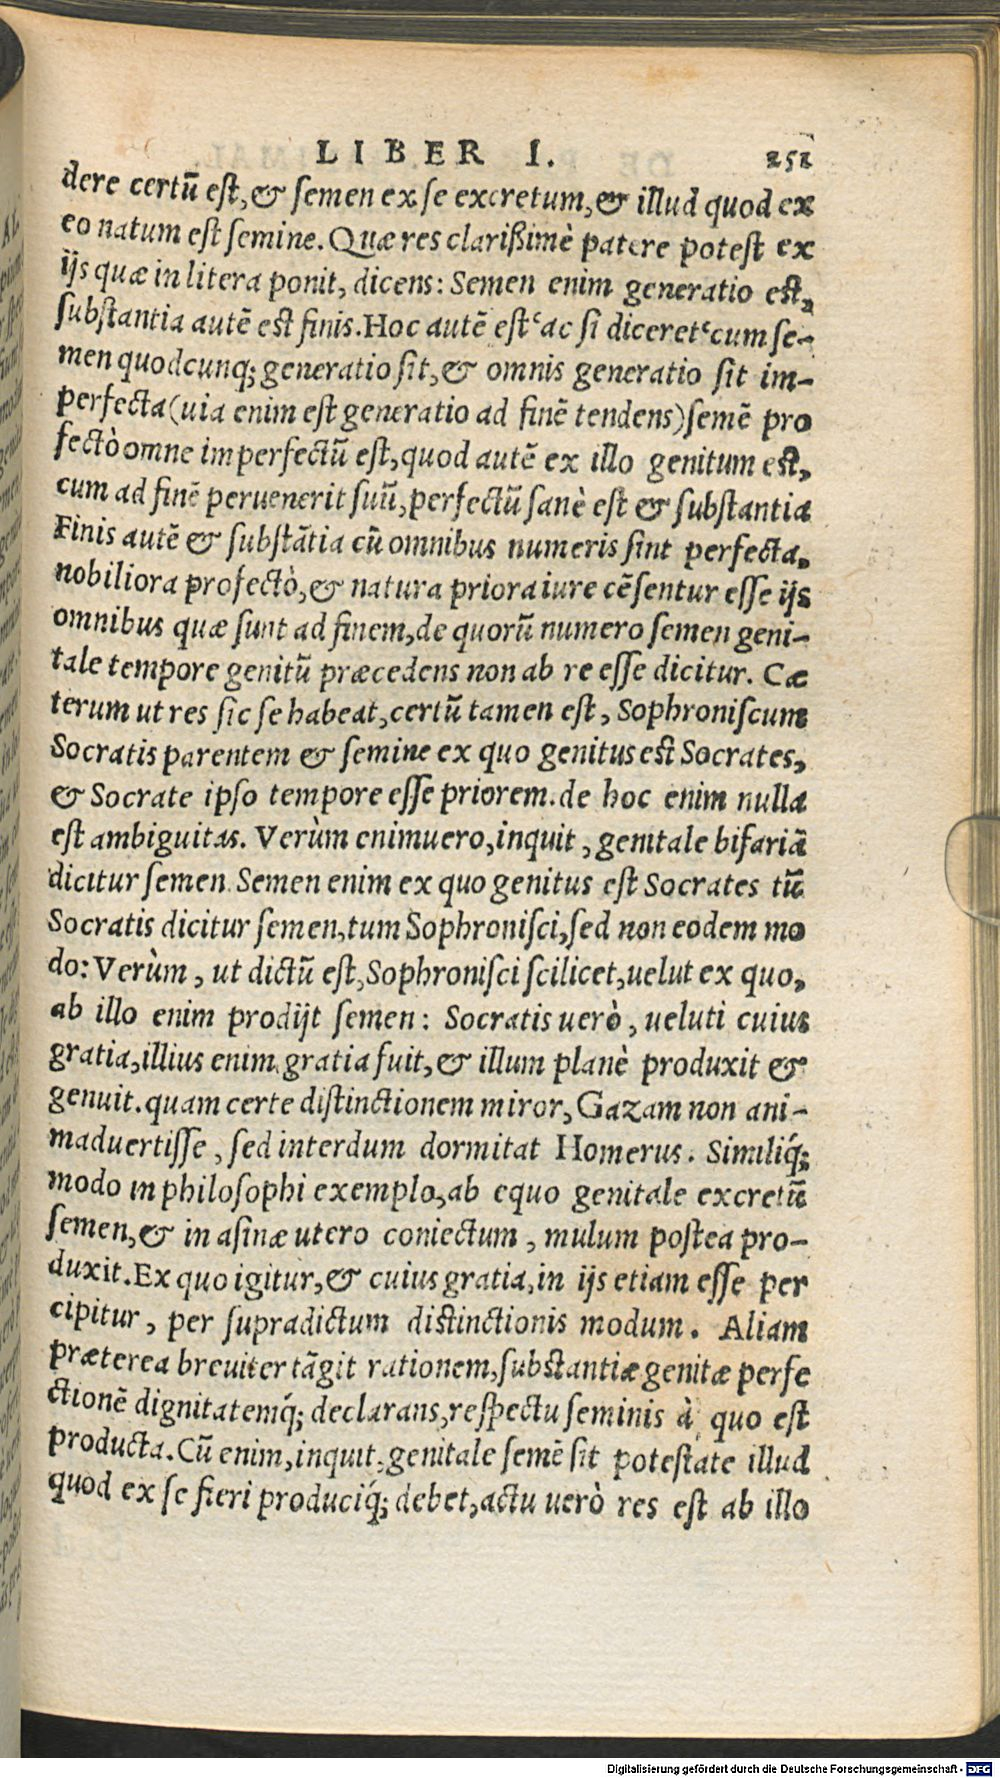 LIBER I. 251
dere certũ eſt, & ſemen ex ſe excretum, & illud quod ex
eo natum eſt ſemine. Quæ res clarißimè patere poteſt ex
ijs quæ in litera ponit, dicens: Semen enim generatio eſt,
ſubſtantia autẽ eſt finis. Hoc autẽ eſt ‘ac ſi diceret ‘cum ſe-
men quodcunq; generatio ſit, & omnis generatio ſit im-
perfecta (uia enim eſt generatio ad finẽ tendens) ſemẽ pro
fectò omne imperfectũ eſt, quod autẽ ex illo genitum eſt,
cum ad finẽ peruenerit ſuũ, perfectũ ſanè eſt & ſubſtantia
Finis autẽ & ſubſtãtia cũ omnibus numeris ſint perfecta,
nobiliora profectò, & natura priora iure cẽſentur eſſe ijs
omnibus quæ ſunt ad finem, de quorũ numero ſemen geni-
tale tempore genitũ præcedens non ab re eſſe dicitur. Cæ
terum ut res ſic ſe habeat, certũ tamen eſt, Sophroniſcum
Socratis parentem & ſemine ex quo genitus eſt Socrates,
& Socrate ipſo tempore eſſe priorem. de hoc enim nulla
eſt ambiguitas. Verùm enimuero, inquit, genitale bifariã
dicitur ſemen. Semen enim ex quo genitus eſt Socrates tũ
Socratis dicitur ſemen, tum Sophroniſci, ſed non eodem mo
do: Verùm, ut dictũ eſt, Sophroniſci ſcilicet, uelut ex quo,
ab illo enim prodijt ſemen: Socratis uerò, ueluti cuius
gratia, illius enim gratia fuit, & illum planè produxit &
genuit. quam certe diſtinctionem miror, Gazam non ani-
maduertiſſe, ſed interdum dormitat Homerus. Similiq́;
modo in philoſophi exemplo, ab equo genitale excretũ
ſemen, & in aſinæ utero coniectum, mulum poſtea pro-
duxit. Ex quo igitur, & cuius gratia, in ijs etiam eſſe per
cipitur, per ſupradictum diſtinctionis modum. Aliam
præterea breuiter tãgit rationem, ſubſtantiæ genitæ perfe
ctionẽ dignitatemq́; declarans, reſpectu ſeminis à quo eſt
producta. Cũ enim, inquit, genitale ſemẽ ſit poteſtate illud
quod ex ſe fieri produciq́; debet, actu uerò res eſt ab illo
Digitalisierung gefördert durch die Deutsche Forschungsgemeinschaft - DFG